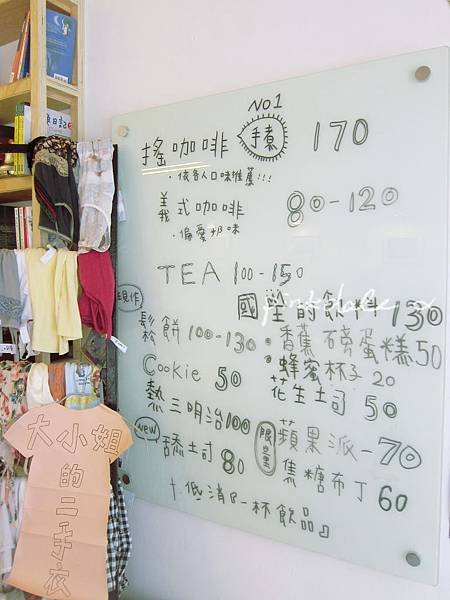 NO1
搖咖啡 手煮 170
・依各人口味推薦!!!
義式咖啡 80-120
・偏愛奶味
TEA 100-150
國瑩的飲料 130
現作
鬆餅 100-130
・香蕉磅蛋糕 50
・蜂蜜杯子 20
Cookie 50
花生土司 50
熱三明治 100
限量 蘋果派-70
new 舔土司 80
焦糖布丁 60
十低消『一杯飲品』
大小姐
的
二手衣